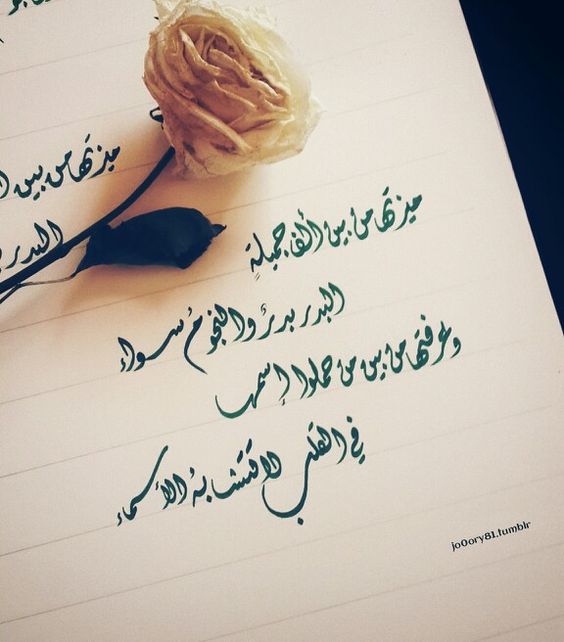 ميزتها من بين
البدر
ميزتها من بين ألف جميلةٍ
البدر بدرٌ والنجومُ سواء
وعرفتها من بين من حملوا إسمها
في القلب لا تتشابهُ الأسماء
jo0ory81.tumblr